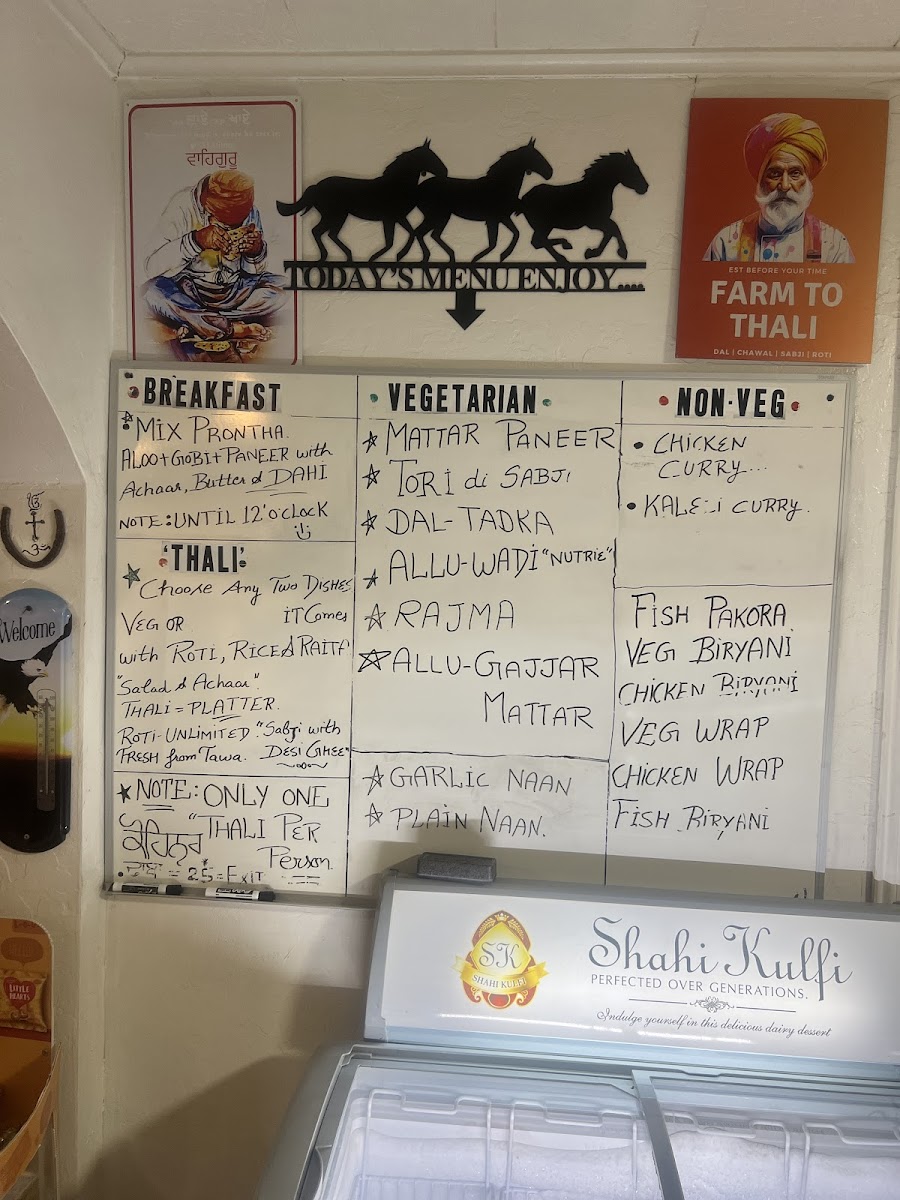 ਵਾਹਿਗੁਰੂ
TODAY'S MENU ENJOY....
EST BEFORE YOUR TIME
FARM TO
THALI
DAL | CHAWAL | SABJI | ROTI
BREAKFAST
MIX PRONTHA.
ALOO+GOBI+PANEER with
Achaar, Butter & DAHI
NOTE: UNTIL 12'o'clock
'THALI'
Choose Any Two Dishes
VEG OR iT Comes
with ROTI, RICE & RAITA
"Salad & Achaar".
THALI = PLATTER.
ROTI-UNLIMITED "Sabji with
FRESH from Tawa. DESI GHEE"
NOTE: ONLY ONE
"THALI PER
Person
= 25 = Exit
VEGETARIAN
MATTAR PANEER
TORI di SABJI
DAL-TADKA
ALLU-WADI "NUTRIE"
RAJMA
ALLU-GAJJAR
MATTAR
GARLIC NAAN
PLAIN NAAN.
NON-VEG
CHICKEN
CURRY...
CURRY.
FISH PAKORA
VEG BIRYANI
CHICKEN BIRYANI
VEG WRAP
CHICKEN WRAP
FISH BIRYANI
ੴ
Welcome
LITTLE
HEARTS
SK
SHAHI KULFI
Shahi Kulfi
PERFECTED OVER GENERATIONS.
Indulge yourself in this delicious dairy dessert